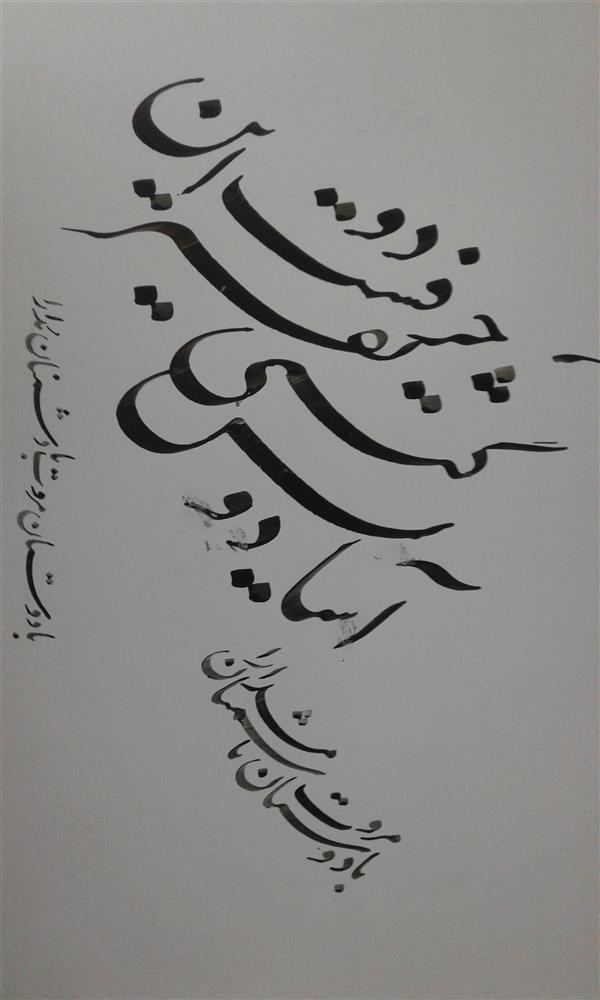 آسایش دو گیتی تفسیر این دو حرفست
با دوستان مروت با دشمنان مدارا
با دوستان مروت با دشمنان مدارا